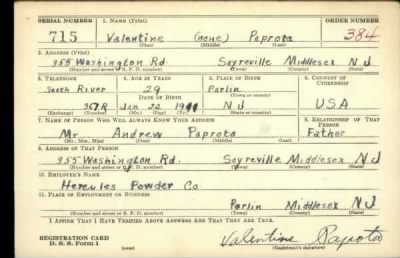 SERIAL NUMBER 1. NAME (Print) ORDER NUMBER
715 Valentine (Gene) Paprota 384
(First) (Middle) (Last)
2. ADDRESS (Print)
355 Washington Rd. Sayreville Middlesex N J
(Number and street or R. F. D. number) (Town) (County) (State)
3. TELEPHONE 4. AGE IN YEARS 5. PLACE OF BIRTH 6. COUNTRY OF CITIZENSHIP
South River 29 Parlin
DATE OF BIRTH (Town or county)
357R Jan 22 1911 N J USA
(Exchange) (Number) (Mo.) (Day) (Yr.) (State or country)
7. NAME OF PERSON WHO WILL ALWAYS KNOW YOUR ADDRESS 8. RELATIONSHIP OF THAT PERSON
Mr. Andrew Paprota Father
(Mr., Mrs., Miss) (First) (Middle) (Last)
9. ADDRESS OF THAT PERSON
355 Washington Rd. Sayreville Middlesex N J
(Number and street or R. F. D. number) (Town) (County) (State)
10. EMPLOYER'S NAME
Hercules Powder Co
11. PLACE OF EMPLOYMENT OR BUSINESS
Parlin Middlesex N J
(Number and street or R. F. D. number) (Town) (County) (State)
I AFFIRM THAT I HAVE VERIFIED ABOVE ANSWERS AND THAT THEY ARE TRUE.
REGISTRATION CARD
D. S. S. Form 1 (over) Valentine Paprota
(Registrant's signature)